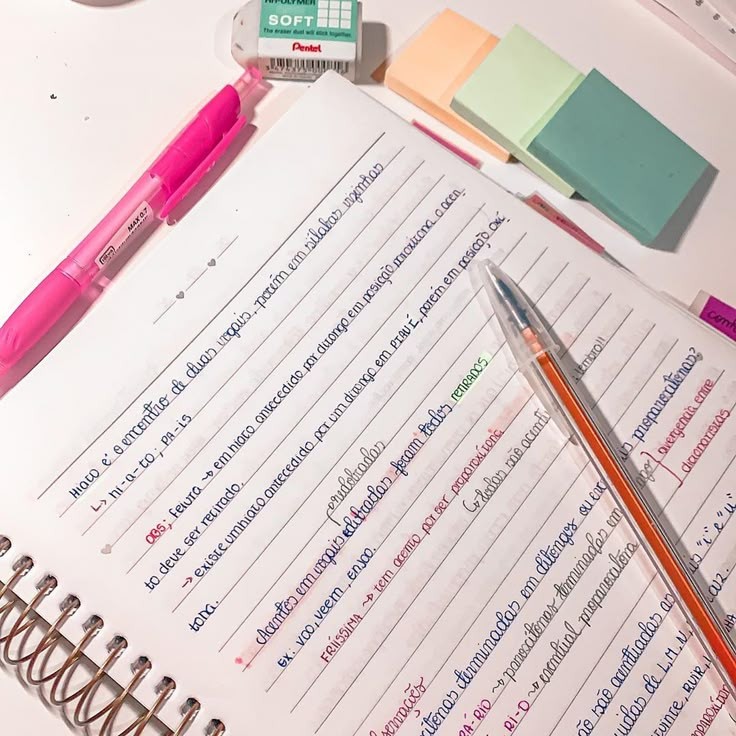 HI-POLYMER
SOFT
The eraser dust will stick together.
Pentel
MAX 0.7
HIATO é o encontro de duas vogais, porém em sílabas vizinhas
↳ hi-a-to, PA-ÍS
OBS: feiura → em hiato antecedido por ditongo em posição paroxítona o acen
to deve ser retirado.
→ existe um hiato antecedido por um ditongo em PIAUÍ, porém em posição oxí
tona.
dobradas
Acentos em vogais dobradas foram todos RETIRADOS
EX: voo, veem, enjoo.
FRIÍSSIMA → tem acento por ser proparoxítona
↳ todas são acenti
lembro!!
servações
terminadas em ditongos ou
as proparoxítonas?
RÁ-RIO → paroxítonas terminadas em
RI-O → eventual proparoxítona
divergência entre
dicionaristas
não são acentuadas as
"i" e "u"
de L, M, N,
RUIR,